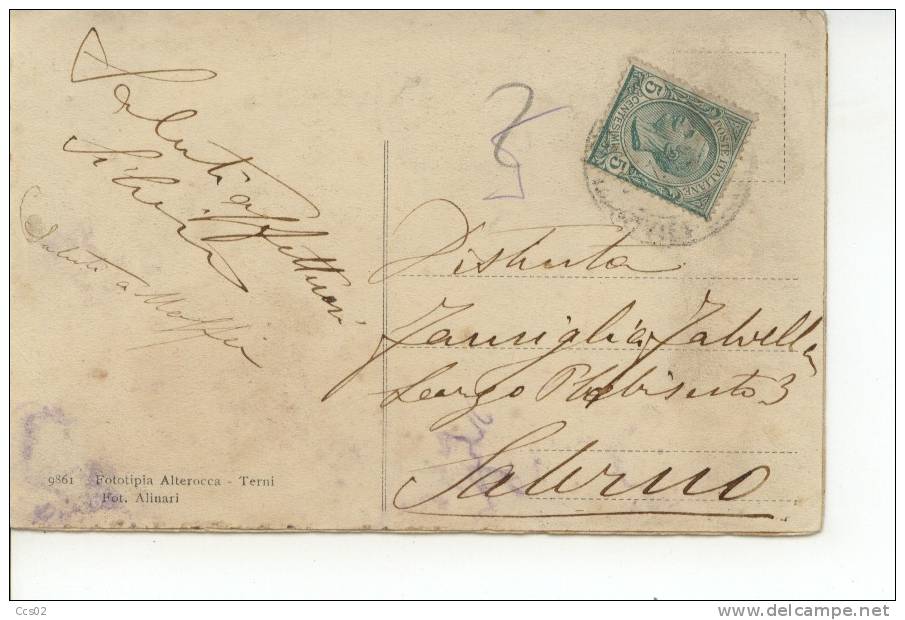 Saluti affettuosi
Saluti a
POSTE ITALIANE
CENTESIMI
5
5
Distinta
Famiglia Talvella
Largo Plebiscito 3
Salerno
9861 Fototipia Alterocca - Terni
Fot. Alinari
Ccs02
www.delcampe.net